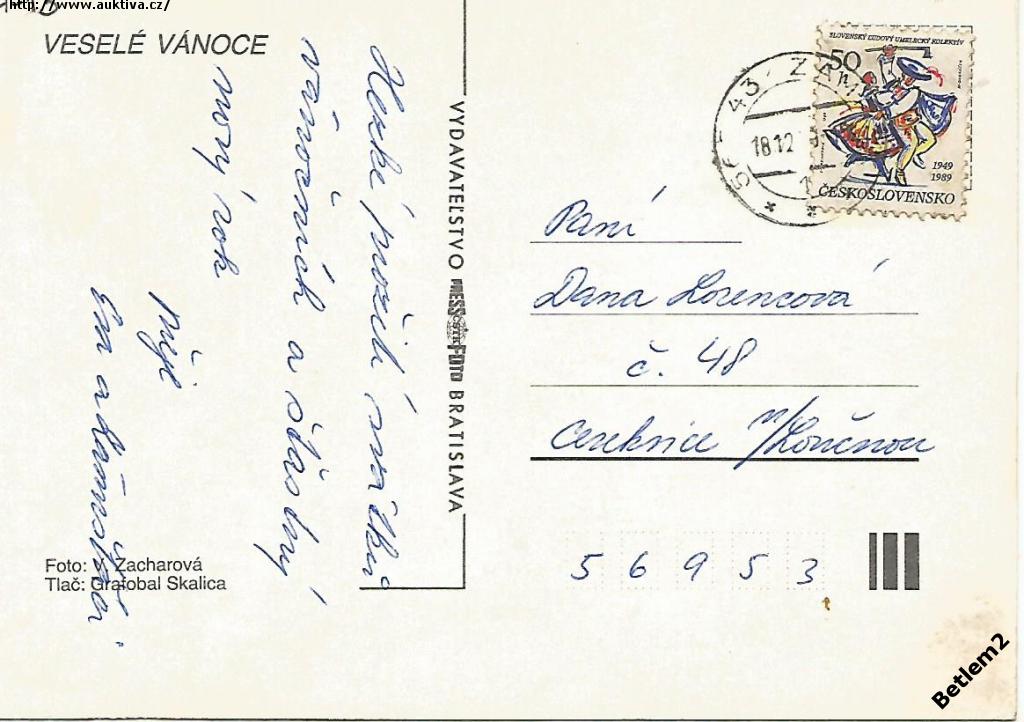 http://www.auktiva.cz/
VESELÉ VÁNOCE
Hezké prožití svátků
vánočních a šťastný
nový rok
přeje
Eva a
Foto: V. Zacharová
Tlač: Grafobal Skalica
VYDAVATEĽSTVO PRESSFOTO BRATISLAVA
567 43 ZÁM
18.12
SLOVENSKÝ ĽUDOVÝ UMELECKÝ KOLEKTÍV
50
1949
1989
ČESKOSLOVENSKO
Paní
Dana Lorencová
č. 48
Cerekvice n/Loučnou
56953
Betlem2